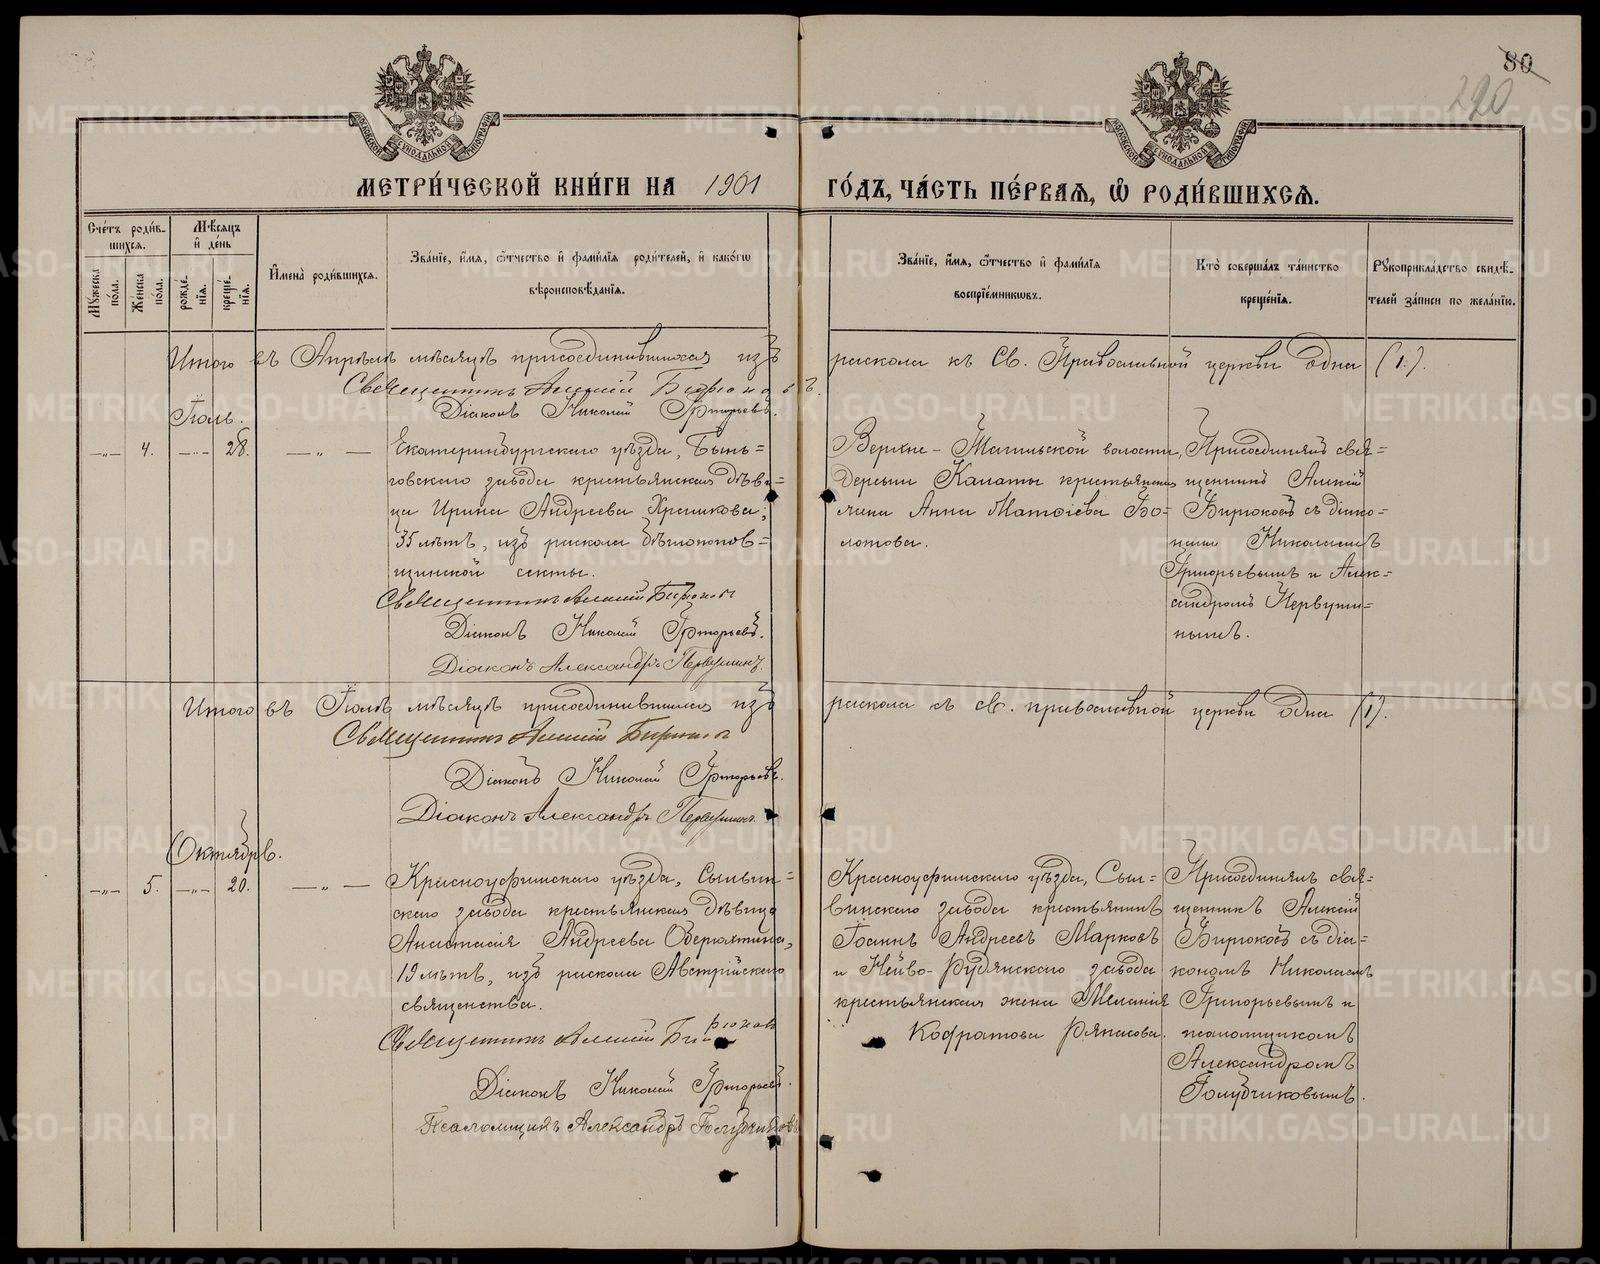 80
220
МЕТРИ́ЧЕСКОЙ КНИ́ГИ НА 1901 ГО́ДЪ, ЧА́СТЬ ПЕ́РВАЯ, Ѿ РОДИ́ВШИХСЯ.
Сче́тъ роди́в-
шихся.
Му́жеска по́ла.
Же́нска по́ла.
Мѣ́сяцъ
и де́нь
рожде́-
нїя.
креще́-
нїя.
Имена̀ роди́вшихся.
Зва́нїе, и́мя, ѻ́тчество и фами́лїя роди́телей, и како́гѡ
вѣроисповѣ́данїя.
Зва́нїе, и́мя, ѻ́тчество и фами́лїя
воспрїе́мникѡвъ.
Кто̀ соверша́лъ та́инство
креще́нїя.
Рꙋкоприкла́дство свидѣ́-
телей за́писи по жела́нїю.
Итого въ Апрѣлѣ мѣсяцѣ присоединившихся изъ раскола къ Св. Православной церкви одна (1).
Священникъ Алексій Бирюковъ.
Діаконъ Николай Григорьевъ.
Іюль.
—„— 4. —„— 28. — „ —
Екатеринбургскаго уѣзда, Бынь=
говскаго завода крестьянская дѣви=
ца Ирина Андреева Храмкова;
35 лѣтъ, изъ раскола бѣглопопов=
щинской секты.
Священникъ Алексій Бирюковъ
Діаконъ Николай Григорьевъ.
Діаконъ Александръ Первушинъ.
Верхне-Тагильской волости,
деревни Каматы крестьянская
Анна Матвіева Бо=
лотова.
Присоединялъ свя=
щенникъ Алексій
Бирюковъ съ діако=
нами Николаемъ
Григорьевымъ и Алек=
сандромъ Первуши=
нымъ.
Итого въ Іюлѣ мѣсяцѣ присоединившихся изъ раскола къ св. православной церкви одна (1).
Священникъ Алексій Бирюковъ
Діаконъ Николай Григорьевъ.
Діаконъ Александръ Первушинъ.
Октябрь.
—„— 5. —„— 20. — „ —
Красноуфимскаго уѣзда, Сылвин=
скаго завода крестьянская дѣвица
Анастасія Андреева Оверохтина,
19 лѣтъ, изъ раскола Австрійскаго
священства.
Священникъ Алексій Бирюков
Діаконъ Николай Григорьевъ.
Псаломщикъ Александръ Голубчиковъ
Красноуфимскаго уѣзда, Сыл=
винскаго завода крестьянинъ
Іоаннъ Андреевъ Марковъ
и Нейво-Рудянскаго завода
крестьянская жена Меланія
Кодратова Рякасова.
Присоединялъ свя=
щенникъ Алексій
Бирюковъ съ діа=
кономъ Николаемъ
Григорьевымъ и
псаломщикомъ
Александромъ
Голубчиковымъ.
METRIKI.GASO-URAL.RU